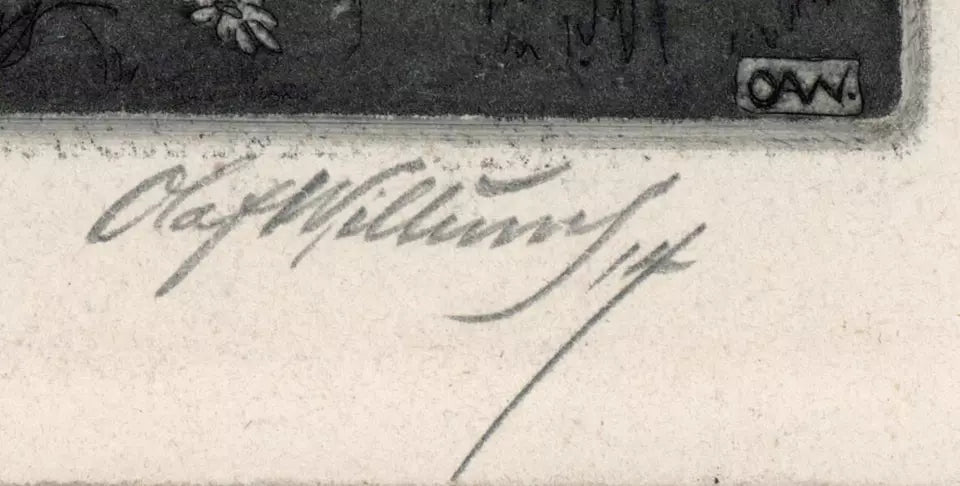 OAW.
Olaf Willums 14